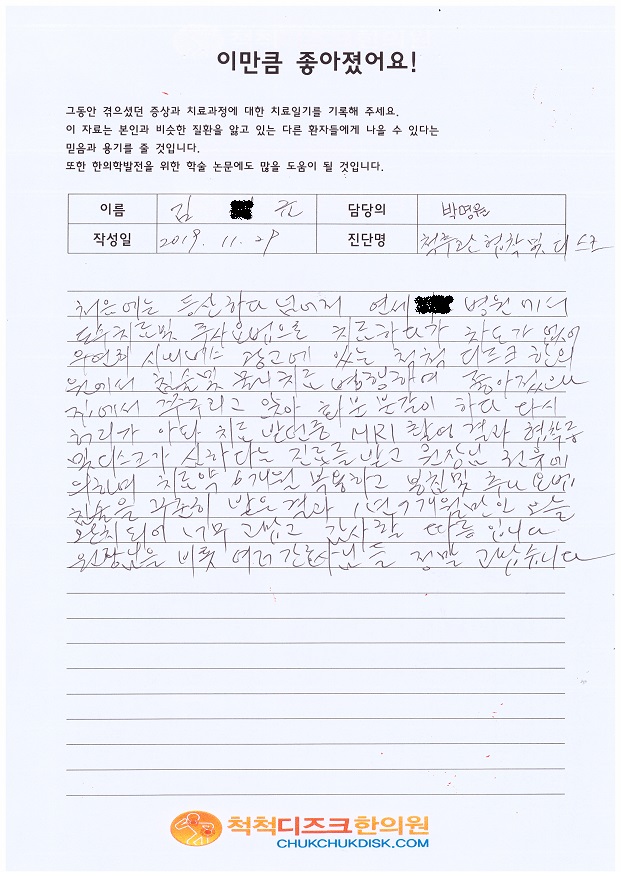 이만큼 좋아졌어요!
그동안 겪으셨던 증상과 치료과정에 대한 치료일기를 기록해 주세요.
이 자료는 본인과 비슷한 질환을 앓고 있는 다른 환자들에게 나을 수 있다는
믿음과 용기를 줄 것입니다.
또한 한의학발전을 위한 학술 논문에도 많을 도움이 될 것입니다.
이름 김 담당의 박영
작성일 2019. 11. 29 진단명 척추관 협착 및 디스크
처음에는 등산하다 넘어져 연세 병원에서
도수치료및 주사요법으로 치료하다가 차도가 없어
우연희 시내버스 광고에 있는 척척 디스크 한의
원에서 침술및 물리치료 병행하여 좋아졌으나
집에서 쭈구리고 앉아 화분 분갈이 하다 다시
허리가 아파 치료 받던중 MRI 촬영결과 협착증
및 디스크가 심하다는 진단를 받고 원장님 권유에
의하여 치료약 6개월 복용하고 봉침및 추나
침술을 꾸준히 받은 결과 1년 개월만인 오늘
완치 되어 너무 고맙고 감사할 따름 입니다
원장님을 비롯 여러 간호사님 들 정말 고맙습니다
척척디즈크한의원
CHUKCHUKDISK.COM